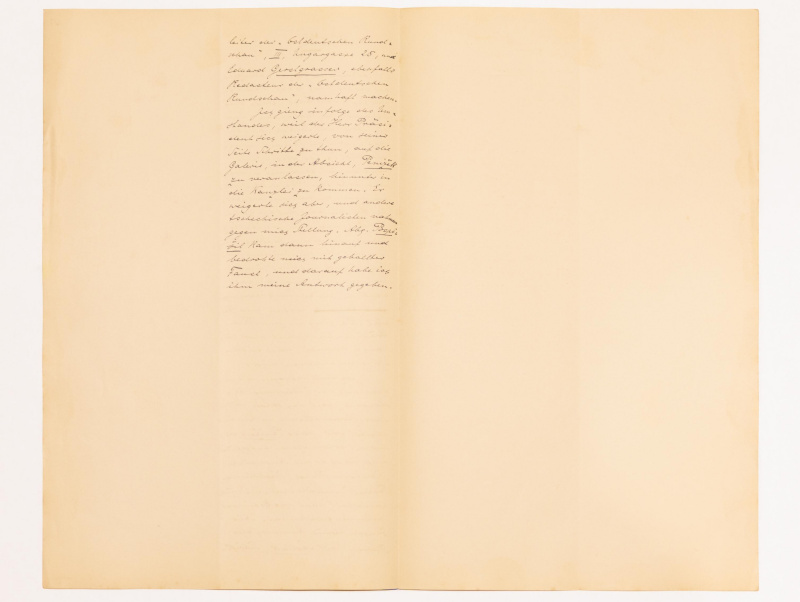 leiter der „Ostdeutschen Rund-
schau", III. Ungargasse 25, und
Eduard , ebenfalls
Redacteur der „Ostdeutschen
Rundschau", namhaft machen.
Ich gieng infolge des Um-
standes, weil der Herr Präsi-
dent sich weigerte, von seiner
Seite Schritte zu thun, auf die
Galerie, in der Absicht,
zu veranlassen, hinunter in
die Kanzlei zu kommen. Er
weigerte sich aber, und andere
tschechische Journalisten nahmen
gegen mich Stellung. Abg.
kam dann hinauf und
bedrohte mich mit geballter
Faust, und darauf habe ich
ihm meine Antwort gegeben.